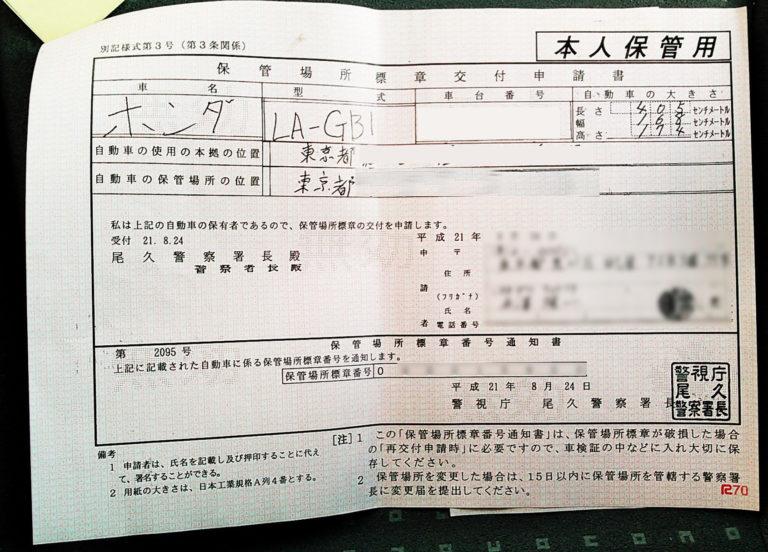 別記様式第3号(第3条関係)
本人保管用
保管場所標章交付申請書
車名 型式 車台番号 自動車の大きさ
ホンダ LA-GB1
長さ 405 センチメートル
幅 168 センチメートル
高さ 174 センチメートル
自動車の使用の本拠の位置 東京都
自動車の保管場所の位置 東京都
私は上記の自動車の保有者であるので、保管場所標章の交付を申請します。
受付 21.8.24
平成 21年
尾久警察署長殿
警察署長殿
申 〒
住所
請
(フリガナ)
氏名
者 電話番号
保管場所標章番号通知書
第 2095 号
上記に記載された自動車に係る保管場所標章番号を通知します。
保管場所標章番号 0
平成 21年 8月 24日
警視庁 尾久警察署長
警視庁
尾久
警察署長
備考
1 申請者は、氏名を記載し及び押印することに代え
て、署名することができる。
2 用紙の大きさは、日本工業規格A列4番とする。
[注] 1 この「保管場所標章番号通知書」は、保管場所標章が破損した場合
の「再交付申請時」に必要ですので、車検証の中などに入れ大切に保
存してください。
2 保管場所を変更した場合は、15日以内に保管場所を管轄する警察署
長に変更届を提出してください。
R70